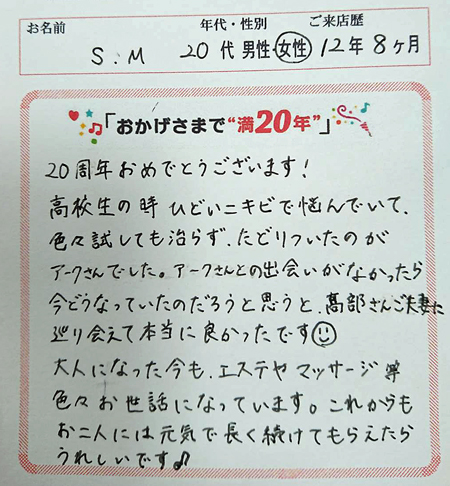 お名前 年代・性別 ご来店歴
S.M 20代 男性・女性 12年8ヶ月
「おかげさまで“満20年”」
20周年おめでとうございます!
高校生の時 ひどいニキビで悩んでいて、
色々試しても治らず、たどりついたのが
アークさんでした。アークさんとの出会いがなかったら
今どうなっていたのだろうと思うと、髙部さんご夫妻に
巡り会えて本当に良かったです☺
大人になった今も、エステや マッサージ等
色々お世話になっています。これからも
お二人には元気で長く続けてもらえたら
うれしいです♪